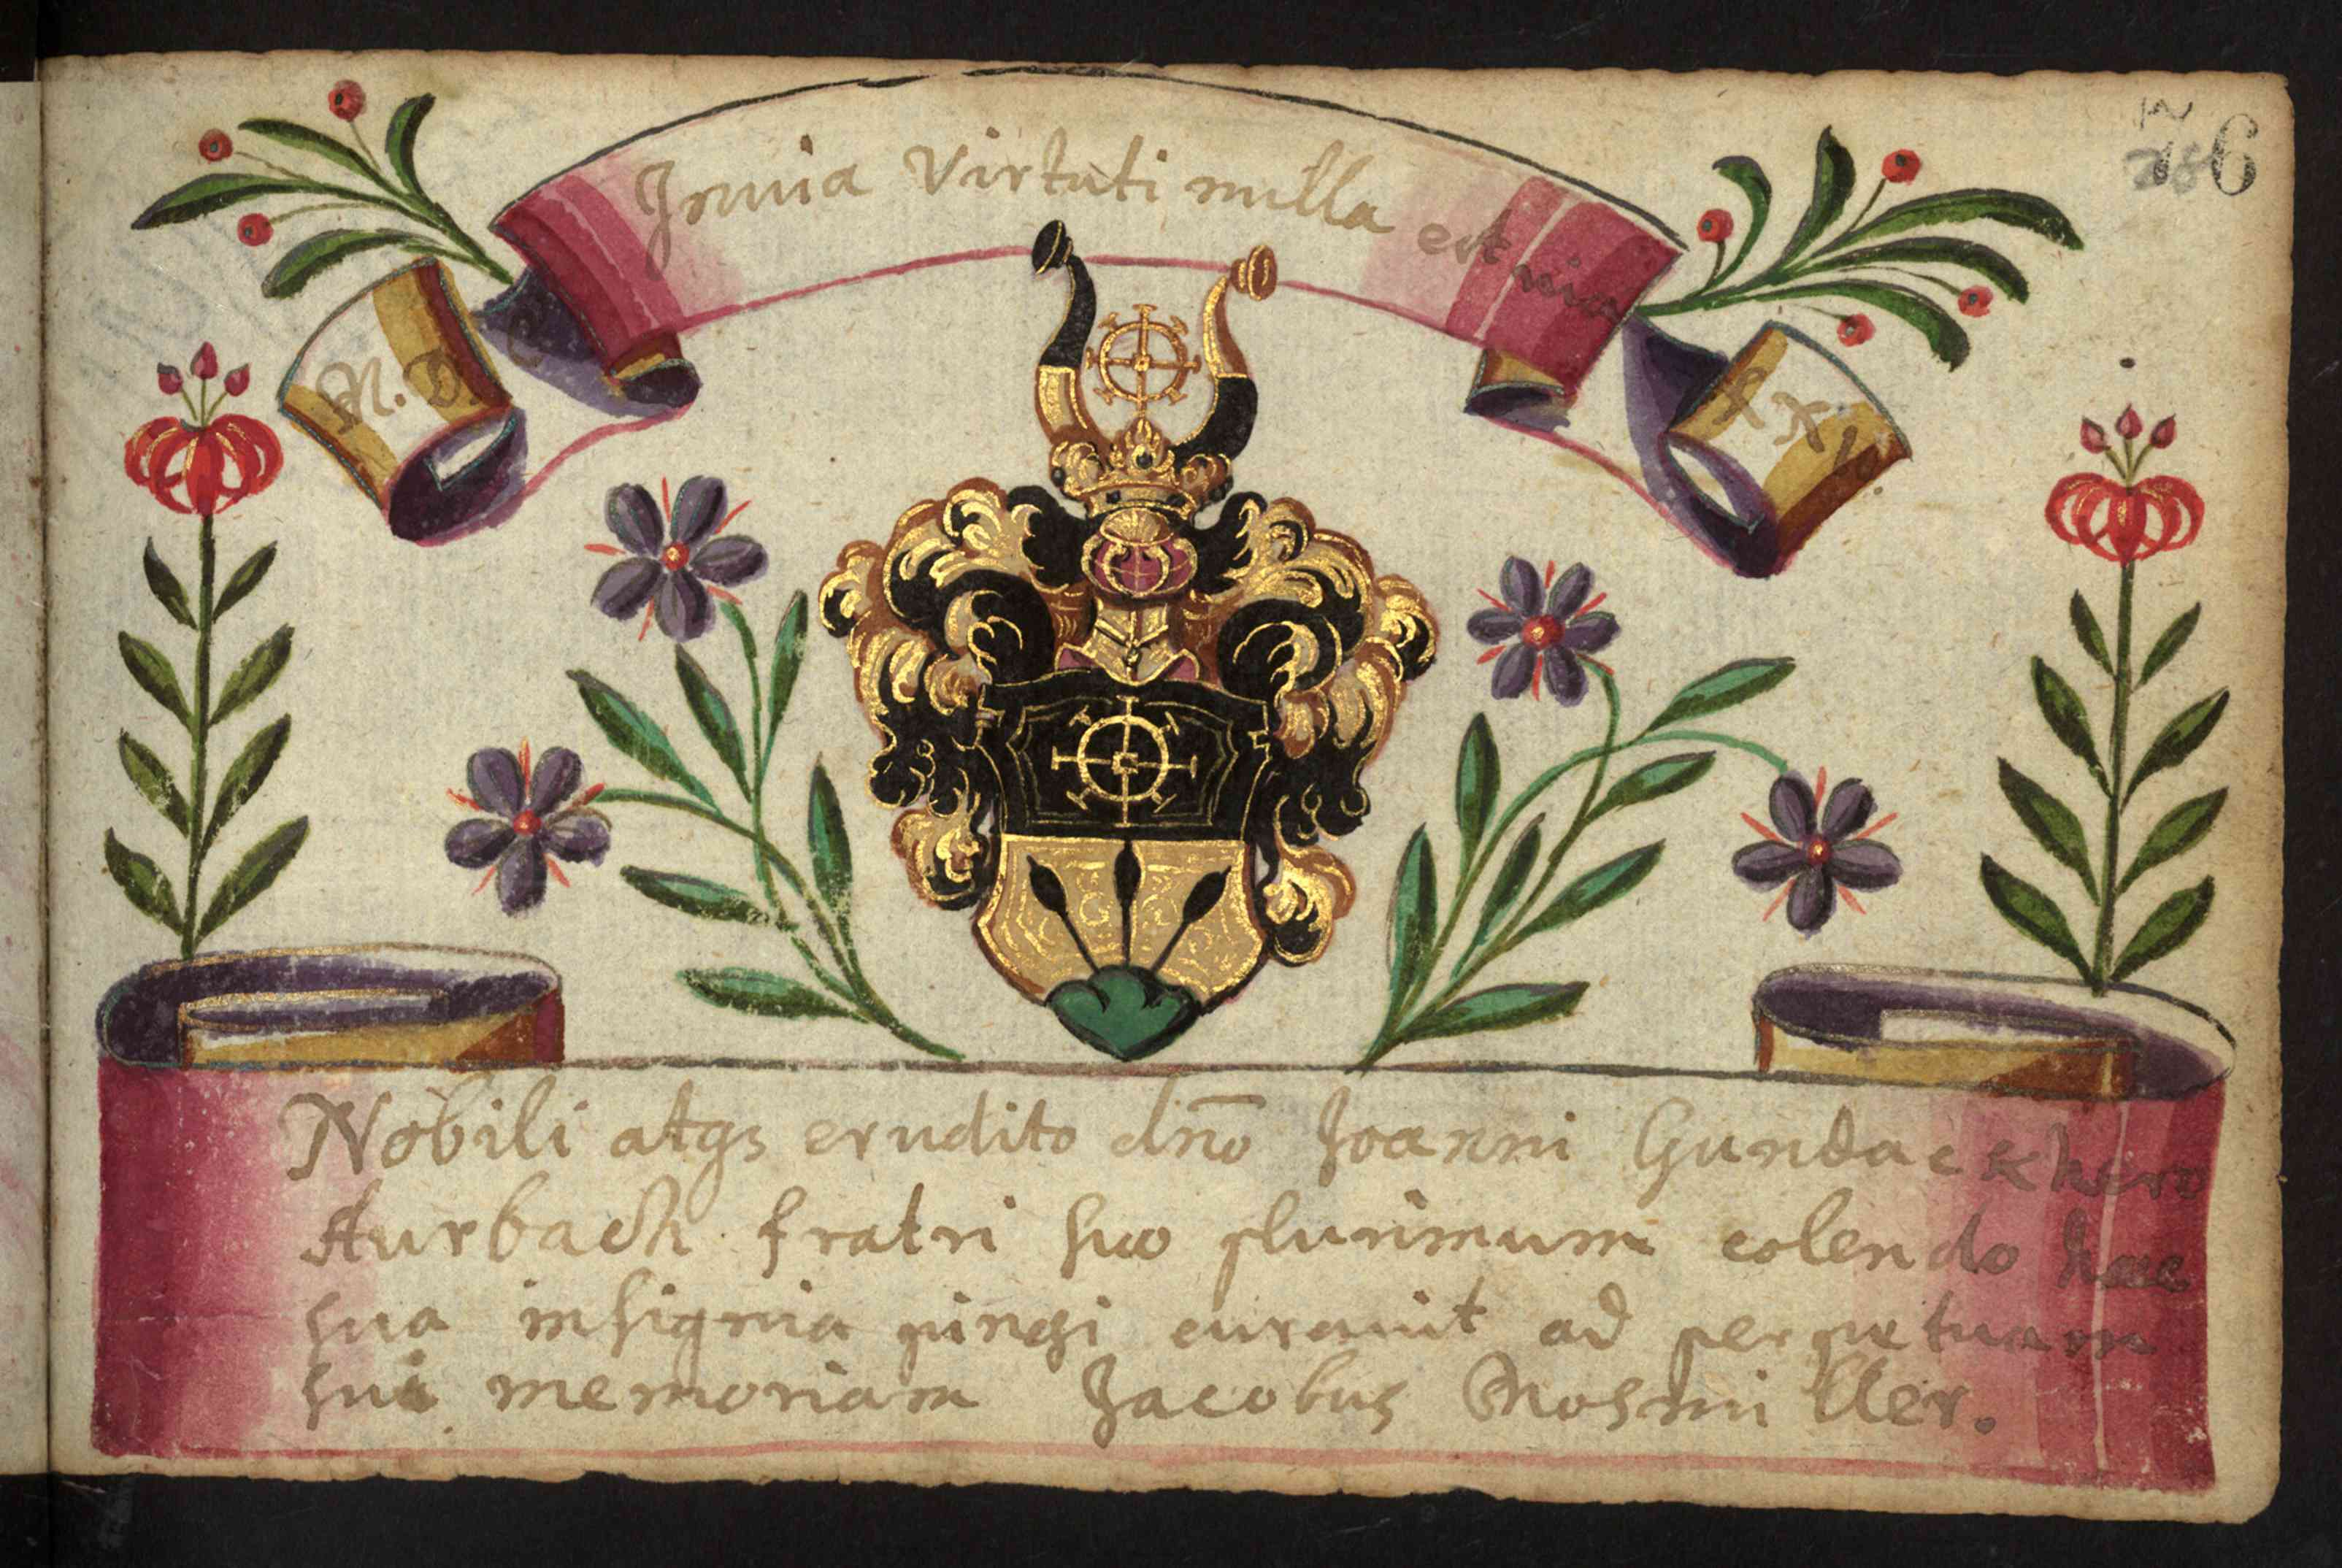 Inuia virtuti nulla est uia
M.D.C
XXV
76
Nobili atqs erudito dno Joanni Gundaekhero
Aurbach fratri suo plurimum colendo haec
sua insignia pingi curauit ad perpetuam
sui memoriam Jacobus Mosmiller.